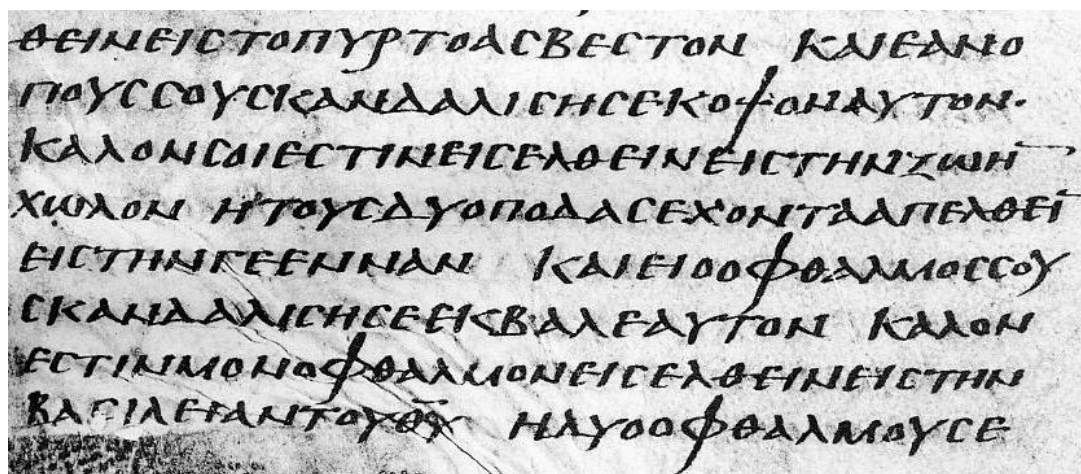 ΘΕΙΝΕΙΣΤΟΠΥΡΤΟΑΣΒΕΣΤΟΝ ΚΑΙΕΑΝΟ
ΠΟΥΣΣΟΥΣΚΑΝΔΑΛΙΣΗΣΕΚΟΨΟΝΑΥΤΟΝ·
ΚΑΛΟΝΣΟΙΕΣΤΙΝΕΙΣΕΛΘΕΙΝΕΙΣΤΗΝΖΩΗ̅
ΧΩΛΟΝ ΗΤΟΥΣΔΥΟΠΟΔΑΣΕΧΟΝΤΑΑΠΕΛΘΕΙ̅
ΕΙΣΤΗΝΓΕΕΝΝΑΝ ΚΑΙΕΙΟΟΦΘΑΛΜΟΣΣΟΥ
ΣΚΑΝΔΑΛΙΣΗΣΕΕΙΣΒΑΛΕΑΥΤΟΝ ΚΑΛΟΝ
ΕΣΤΙΝΜΟΝΟΦΘΑΛΜΟΝΕΙΣΕΛΘΕΙΝΕΙΣΤΗΝ
ΒΑΣΙΛΕΙΑΝΤΟΥΘ̅Υ̅ ΗΔΥΟΟΦΘΑΛΜΟΥΣΕ